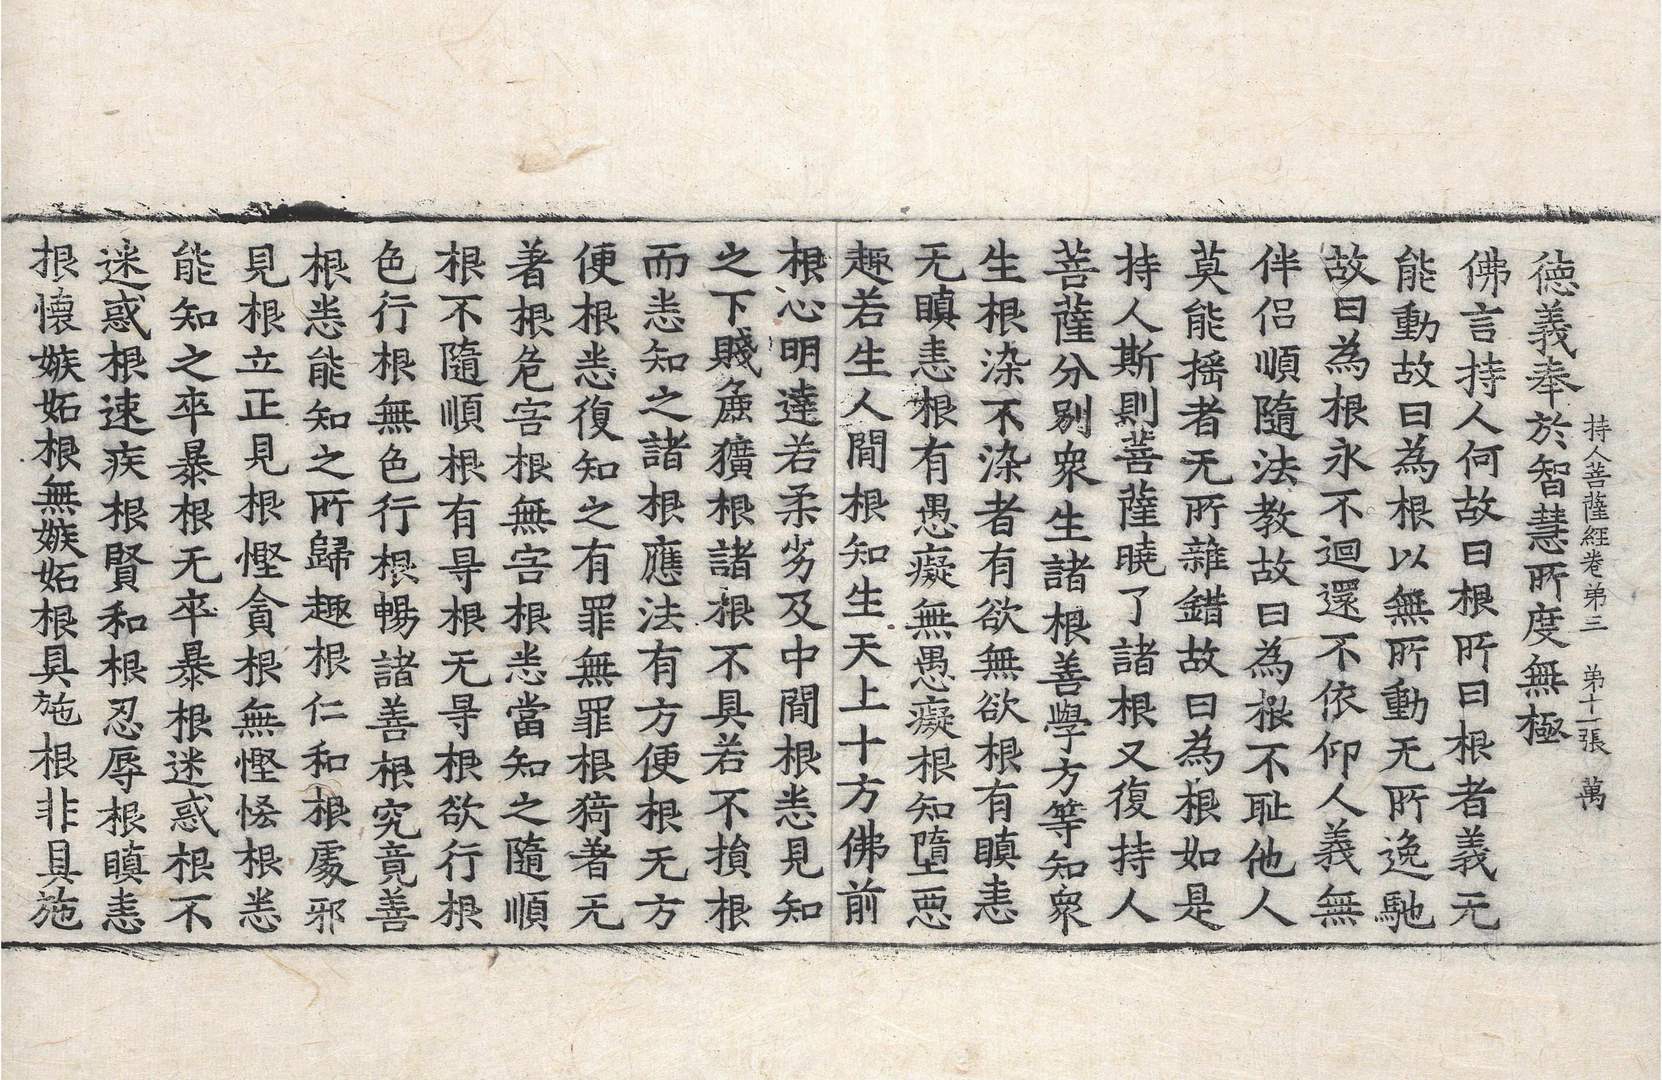 持人菩薩經卷第三　第十一張　萬
德義奉於智慧所度無極
佛言持人何故曰根所曰根者義无
能動故曰為根以無所動无所逸馳
故曰為根永不迴還不依仰人義無
伴侣順隨法教故曰為根不耻他人
莫能揺者无所雜錯故曰為根如是
持人斯則菩薩曉了諸根又復持人
菩薩分别衆生諸根善學方等知衆
生根染不染者有欲無欲根有瞋恚
无瞋恚根有愚癡無愚癡根知墮恶
趣若生人間根知生天上十方佛前
根心明達若柔劣及中間根悉見知
之下賤麁獷根諸根不具若不損根
而悉知之諸根應法有方便根无方
便根悉復知之有罪無罪根猗著无
著根危害根無害根悉當知之隨順
根不隨順根有㝵根无㝵根欲行根
色行根無色行根暢諸善根究竟善
根悉能知之所歸趣根仁和根處邪
見根立正見根慳貪根無慳悋根悉
能知之卒暴根无卒暴根迷惑根不
迷惑根速疾根賢和根忍辱根瞋恚
根懷嫉妬根無嫉妬根具施根非具施